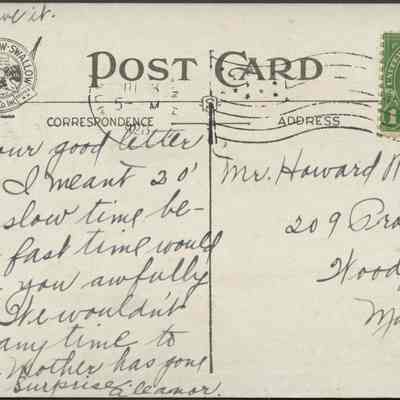 ve it.
OW-SWALLOW
POST CARD
5- M
CORRESPONDENCE
ADDRESS
our good letter
I meant 20'
slow time be-
fast time would
you awfully
We wouldn't
any time to
Mother has gone
Surprise Eleanor.
Mr. Howard
209 Pro
Wood
Ma
1